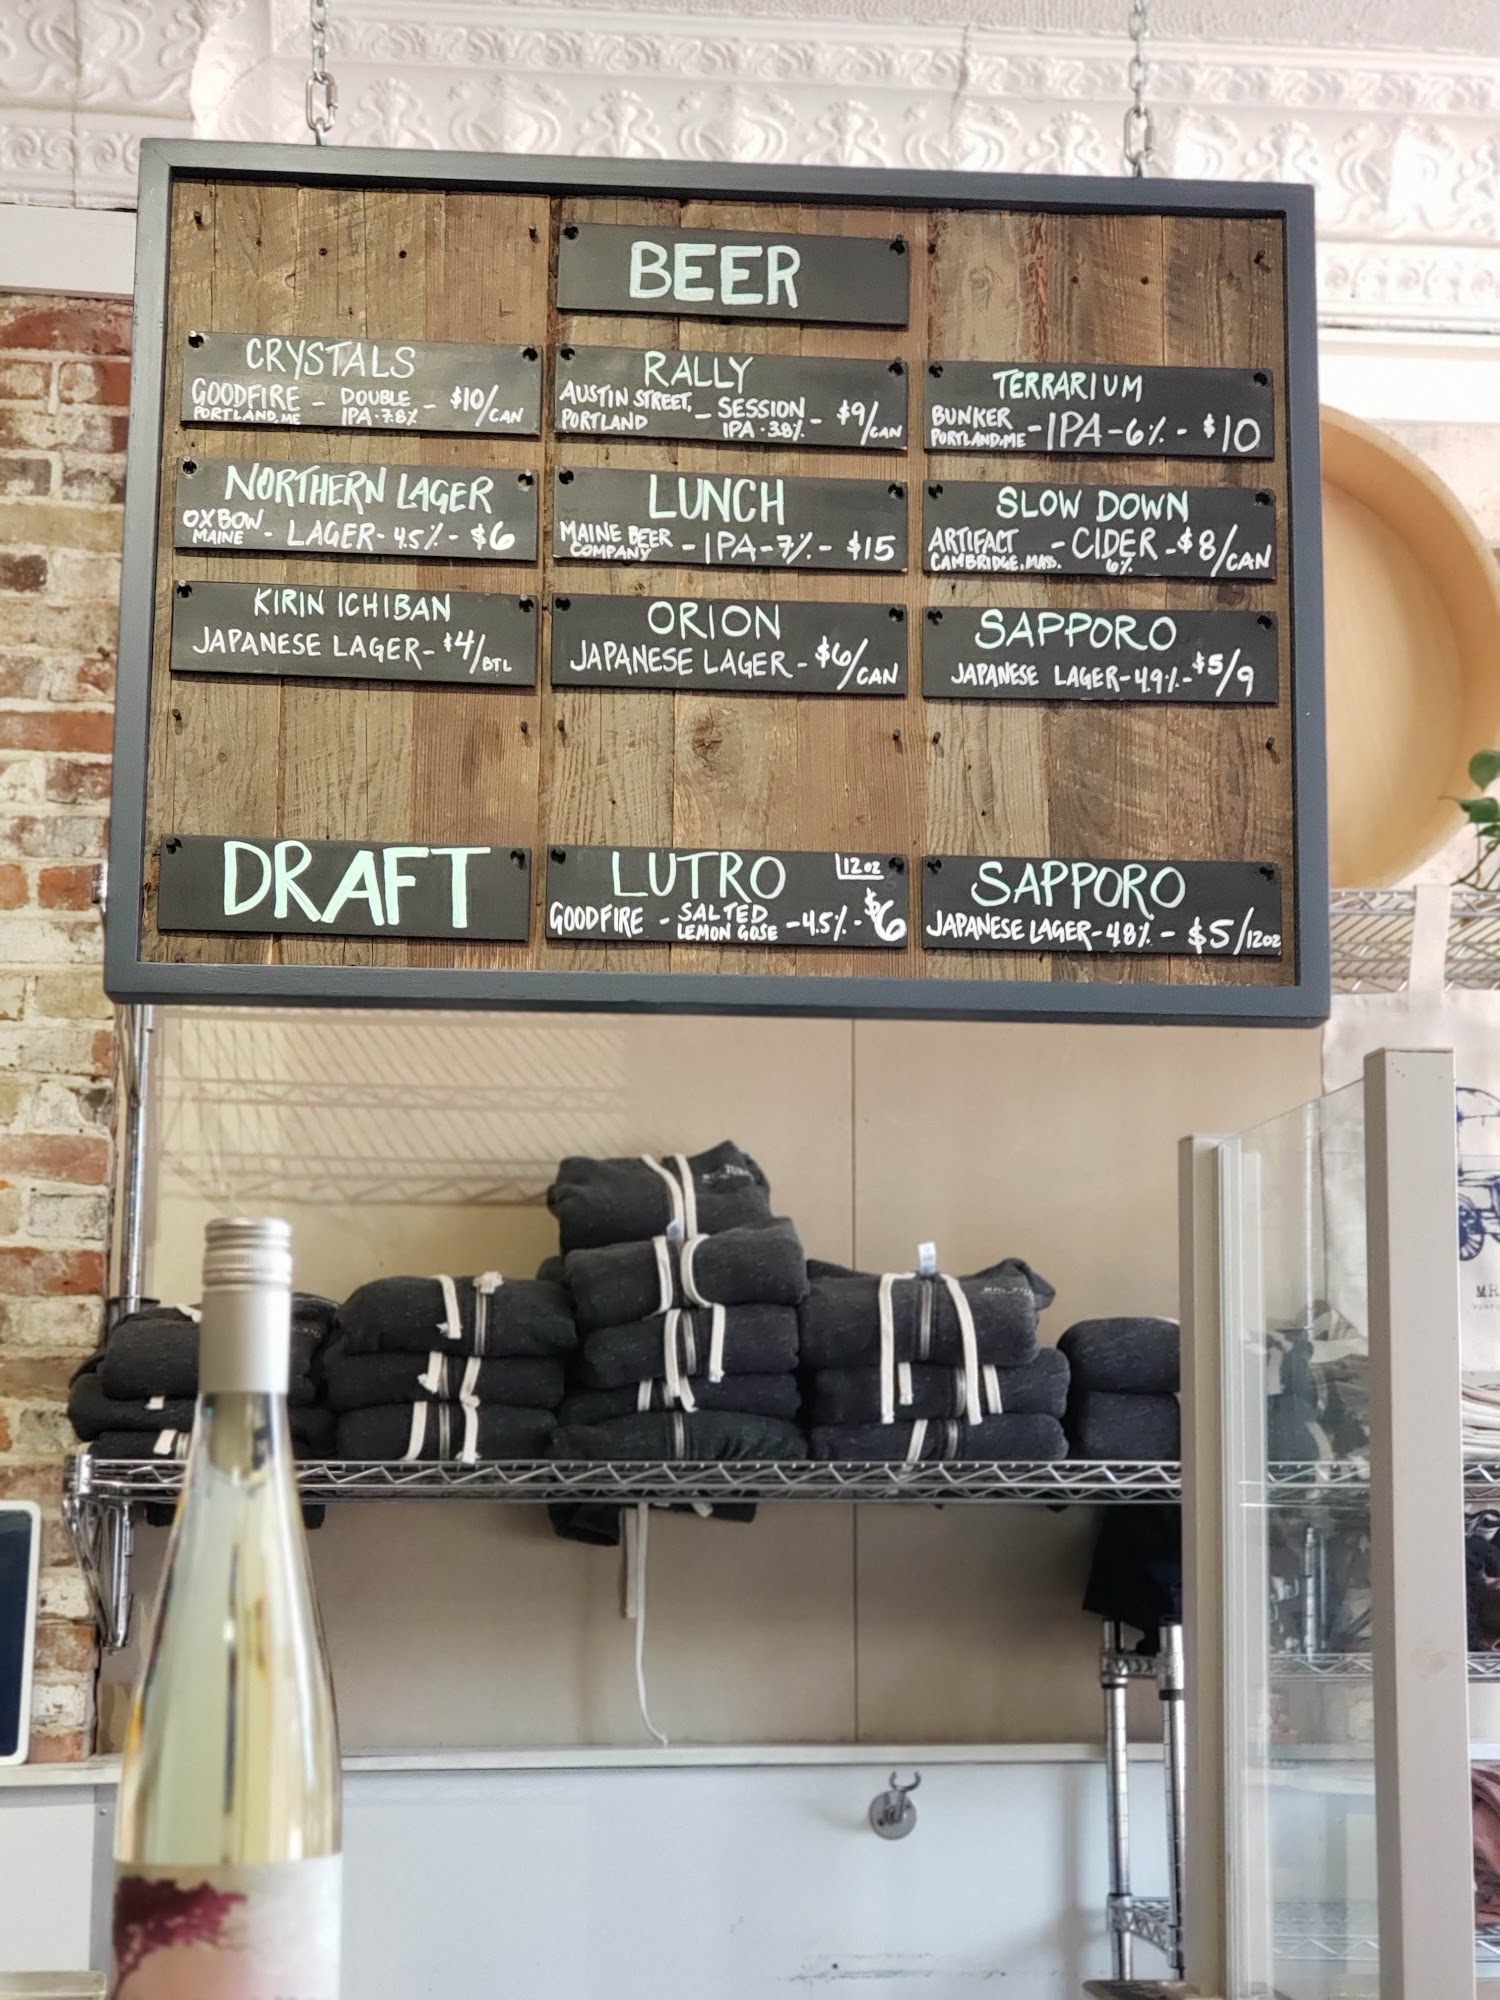 BEER
CRYSTALS
GOODFIRE - DOUBLE - $10/CAN
PORTLAND, ME IPA · 7.8%
RALLY
AUSTIN STREET, - SESSION - $9/CAN
PORTLAND IPA · 3.8%
TERRARIUM
BUNKER - IPA - 6% - $10
PORTLAND, ME
NORTHERN LAGER
OXBOW - LAGER - 4.5% - $6
MAINE
LUNCH
MAINE BEER - IPA - 7% - $15
COMPANY
SLOW DOWN
ARTIFACT - CIDER - $8/CAN
CAMBRIDGE, MASS. 6%
KIRIN ICHIBAN
JAPANESE LAGER - $4/BTL
ORION
JAPANESE LAGER - $6/CAN
SAPPORO
JAPANESE LAGER - 4.9% - $5/9
DRAFT
LUTRO 12oz
GOODFIRE - SALTED - 4.5% - $6
LEMON GOSE
SAPPORO
JAPANESE LAGER - 4.8% - $5/12oz